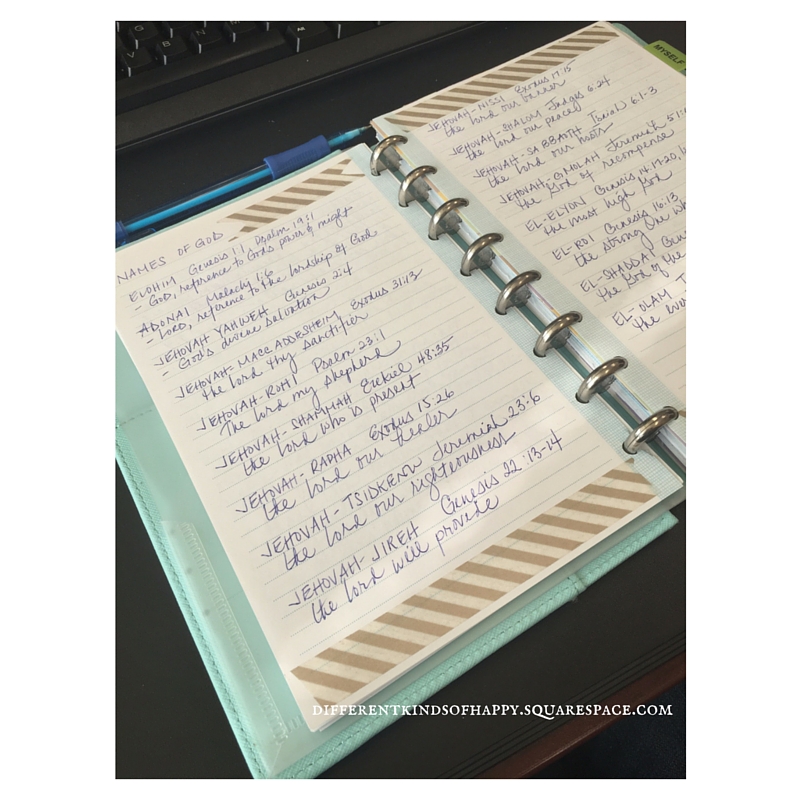 NAMES OF GOD
ELOHIM Genesis 1:1, Psalm 19:1
- GOD, reference to God's power & might
ADONAI Malachi 1:6
- LORD, reference to the lordship of God
JEHOVAH YAHWEH Genesis 2:4
- God's divine salvation
JEHOVAH-MACCADDESHEIM Exodus 31:13
the lord thy sanctifier
JEHOVAH-ROHI Psalm 23:1
The lord my shepherd
JEHOVAH-SHAMMAH Ezekiel 48:35
the lord who is present
JEHOVAH-RAPHA Exodus 15:26
the lord our healer
JEHOVAH-TSIDKENU Jeremiah 23:6
the lord our righteousness
JEHOVAH-JIREH Genesis 22:13-14
the lord will provide
JEHOVAH-NISSI Exodus 17:15
the lord our banner
JEHOVAH-SHALOM Judges 6:24
the lord our peace
JEHOVAH-SABBAOTH Isaiah 6:1-3
the lord our hosts
JEHOVAH-GMOLAH Jeremiah 51:
the God of recompense
EL-ELYON Genesis 14:17-20,
the most high God
EL-ROI Genesis 16:13
the strong one
EL-SHADDAI
the God of the
EL-OLAM
the
MYSELF
DIFFERENTKINDSOFHAPPY.SQUARESPACE.COM